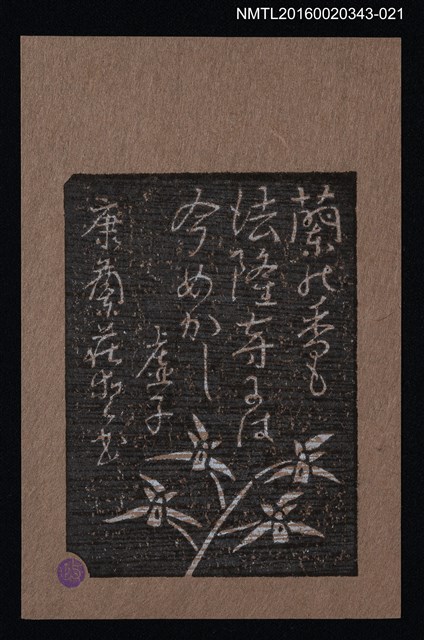 NMTL20160020343-021
蘭の香も
法隆寺には
今めかし
虚子
康蘭荘